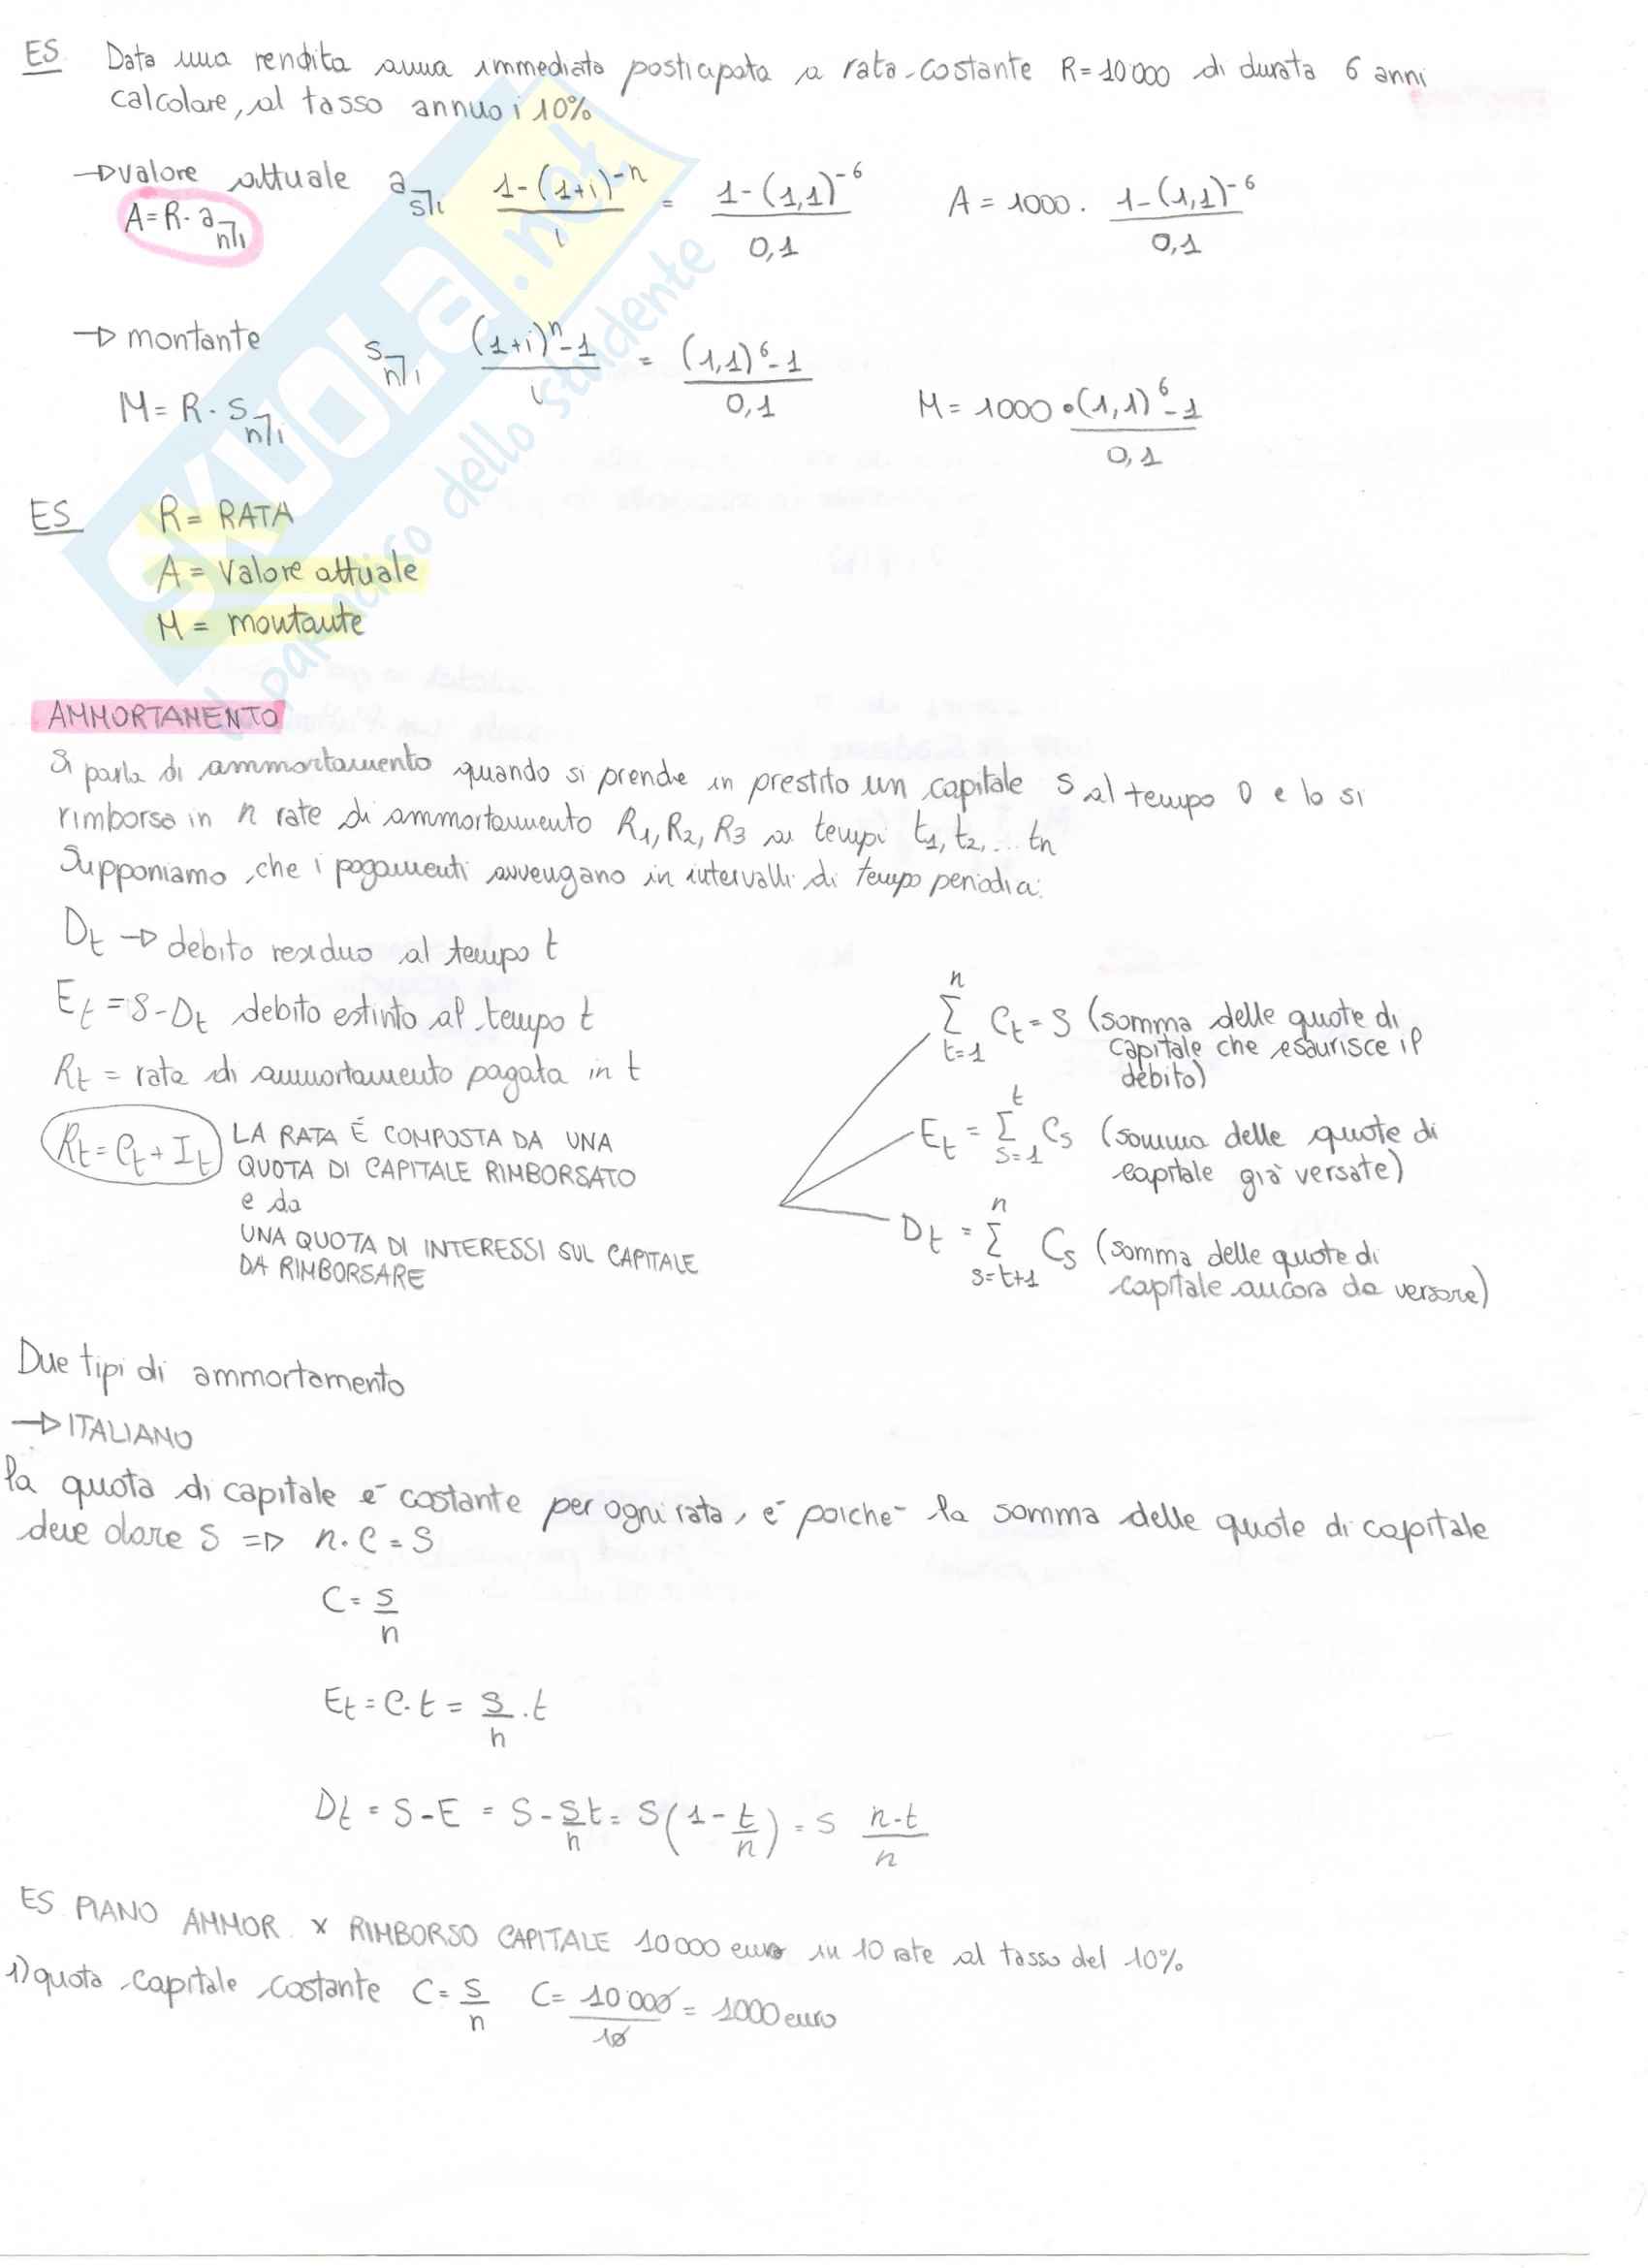 ES. Data una rendita annua immediata posticipata a rata costante R=10000 di durata 6 anni
calcolare, al tasso annuo i 10%
→ valore attuale a s┐i 1-(1+i)^-n / i = 1-(1,1)^-6 / 0,1 A = 1000 · 1-(1,1)^-6 / 0,1
A=R·a n┐i
→ montante s n┐i (1+i)^n-1 / i = (1,1)^6-1 / 0,1
M=R·s n┐i M = 1000 · (1,1)^6-1 / 0,1
ES R= RATA
A= Valore attuale
M= montante
AMMORTAMENTO
Si parla di ammortamento quando si prende in prestito un capitale S al tempo 0 e lo si
rimborsa in n rate di ammortamento R1, R2, R3 ai tempi t1, t2, ... tn
Supponiamo che i pagamenti avvengano in intervalli di tempo periodici:
Dt → debito residuo al tempo t
Et = S-Dt debito estinto al tempo t
Rt = rata di ammortamento pagata in t
Rt = Ct + It LA RATA É COMPOSTA DA UNA
QUOTA DI CAPITALE RIMBORSATO
e da
UNA QUOTA DI INTERESSI SUL CAPITALE
DA RIMBORSARE
n Σ t=1 Ct = S (somma delle quote di
capitale che esaurisce il
debito)
Et = t Σ s=1 Cs (somma delle quote di
capitale già versate)
Dt = n Σ s=t+1 Cs (somma delle quote di
capitale ancora da versare)
Due tipi di ammortamento
→ ITALIANO
la quota di capitale é costante per ogni rata, é poiché la somma delle quote di capitale
deve dare S => n·C=S
C = S/n
Et = C·t = S/n · t
Dt = S-E = S - S/n t = S(1 - t/n) = S n-t / n
ES PIANO AMMOR. x RIMBORSO CAPITALE 10000 euro in 10 rate al tasso del 10%
1) quota capitale costante C= S/n C= 10 000 / 10 = 1000 euro
SKUOLA.net
il paradiso dello studente